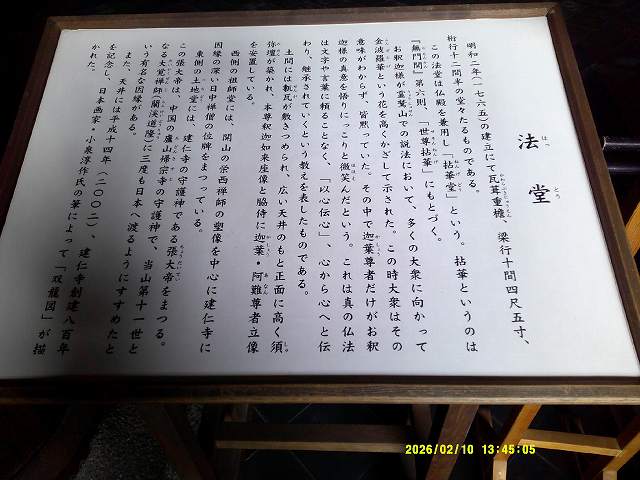 法堂
はっとう
明和二年(一七六五)の建立にて瓦葺重檐、梁行十間四尺五寸、
桁行十二間半の堂々たるものである。
この法堂は仏殿を兼用し「拈華堂」という。拈華というのは
『無門関』第六則、「世尊拈華」にもとづく。
お釈迦様が霊鷲山での説法において、多くの大衆に向かって
金波羅華という花を高くかざして示された。この時大衆はその
意味がわからず、皆黙っていた。その中で迦葉尊者だけがお釈
迦様の真意を悟りにっこりと微笑んだという。これは真の仏法
は文字や言葉に頼ることなく、「以心伝心」、心から心へと伝
わり、継承されていくという教えを表したものである。
土間には瓦が敷きつめられ、広い天井のもと正面に高く須
弥壇が築かれ、本尊釈迦如来座像と脇侍に迦葉・阿難尊者立像
を安置している。
西側の祖師堂には、開山の栄西禅師の塑像を中心に建仁寺に
因縁の深い日中禅僧の位牌をまつっている。
東側の土地堂には、建仁寺の守護神である張大帝をまつる。
この張大帝は、中国の廬山帰宗寺の守護神で、当山第十一世と
なる大覚禅師(蘭渓道隆)に三度も日本へ渡るようにすすめたと
いう有名な因縁がある。
また、天井には平成十四年(二〇〇二)、建仁寺創建八百年
を記念し、日本画家・小泉淳作氏の筆によって「双龍図」が描
かれた。
2026/02/10 13:45:05